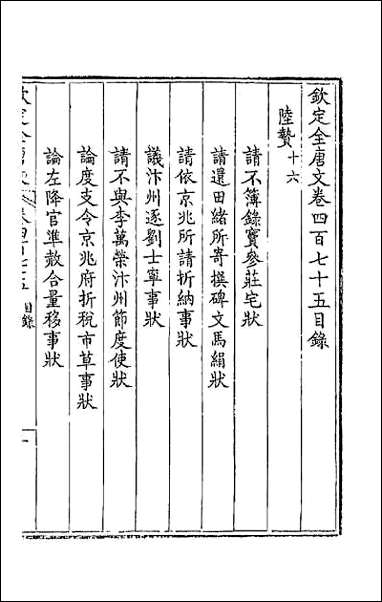 欽定全唐文卷四百七十五目錄
陸贄十六
請不簿錄竇參莊宅狀
請還田緒所寄撰碑文馬絹狀
請依京兆所請折納事狀
議汴州逐劉士寧事狀
請不與李萬榮汴州節度使狀
論度支令京兆府折稅市草事狀
論左降官準赦合量移事狀
欽定全唐文 卷四百七十五 目錄 一